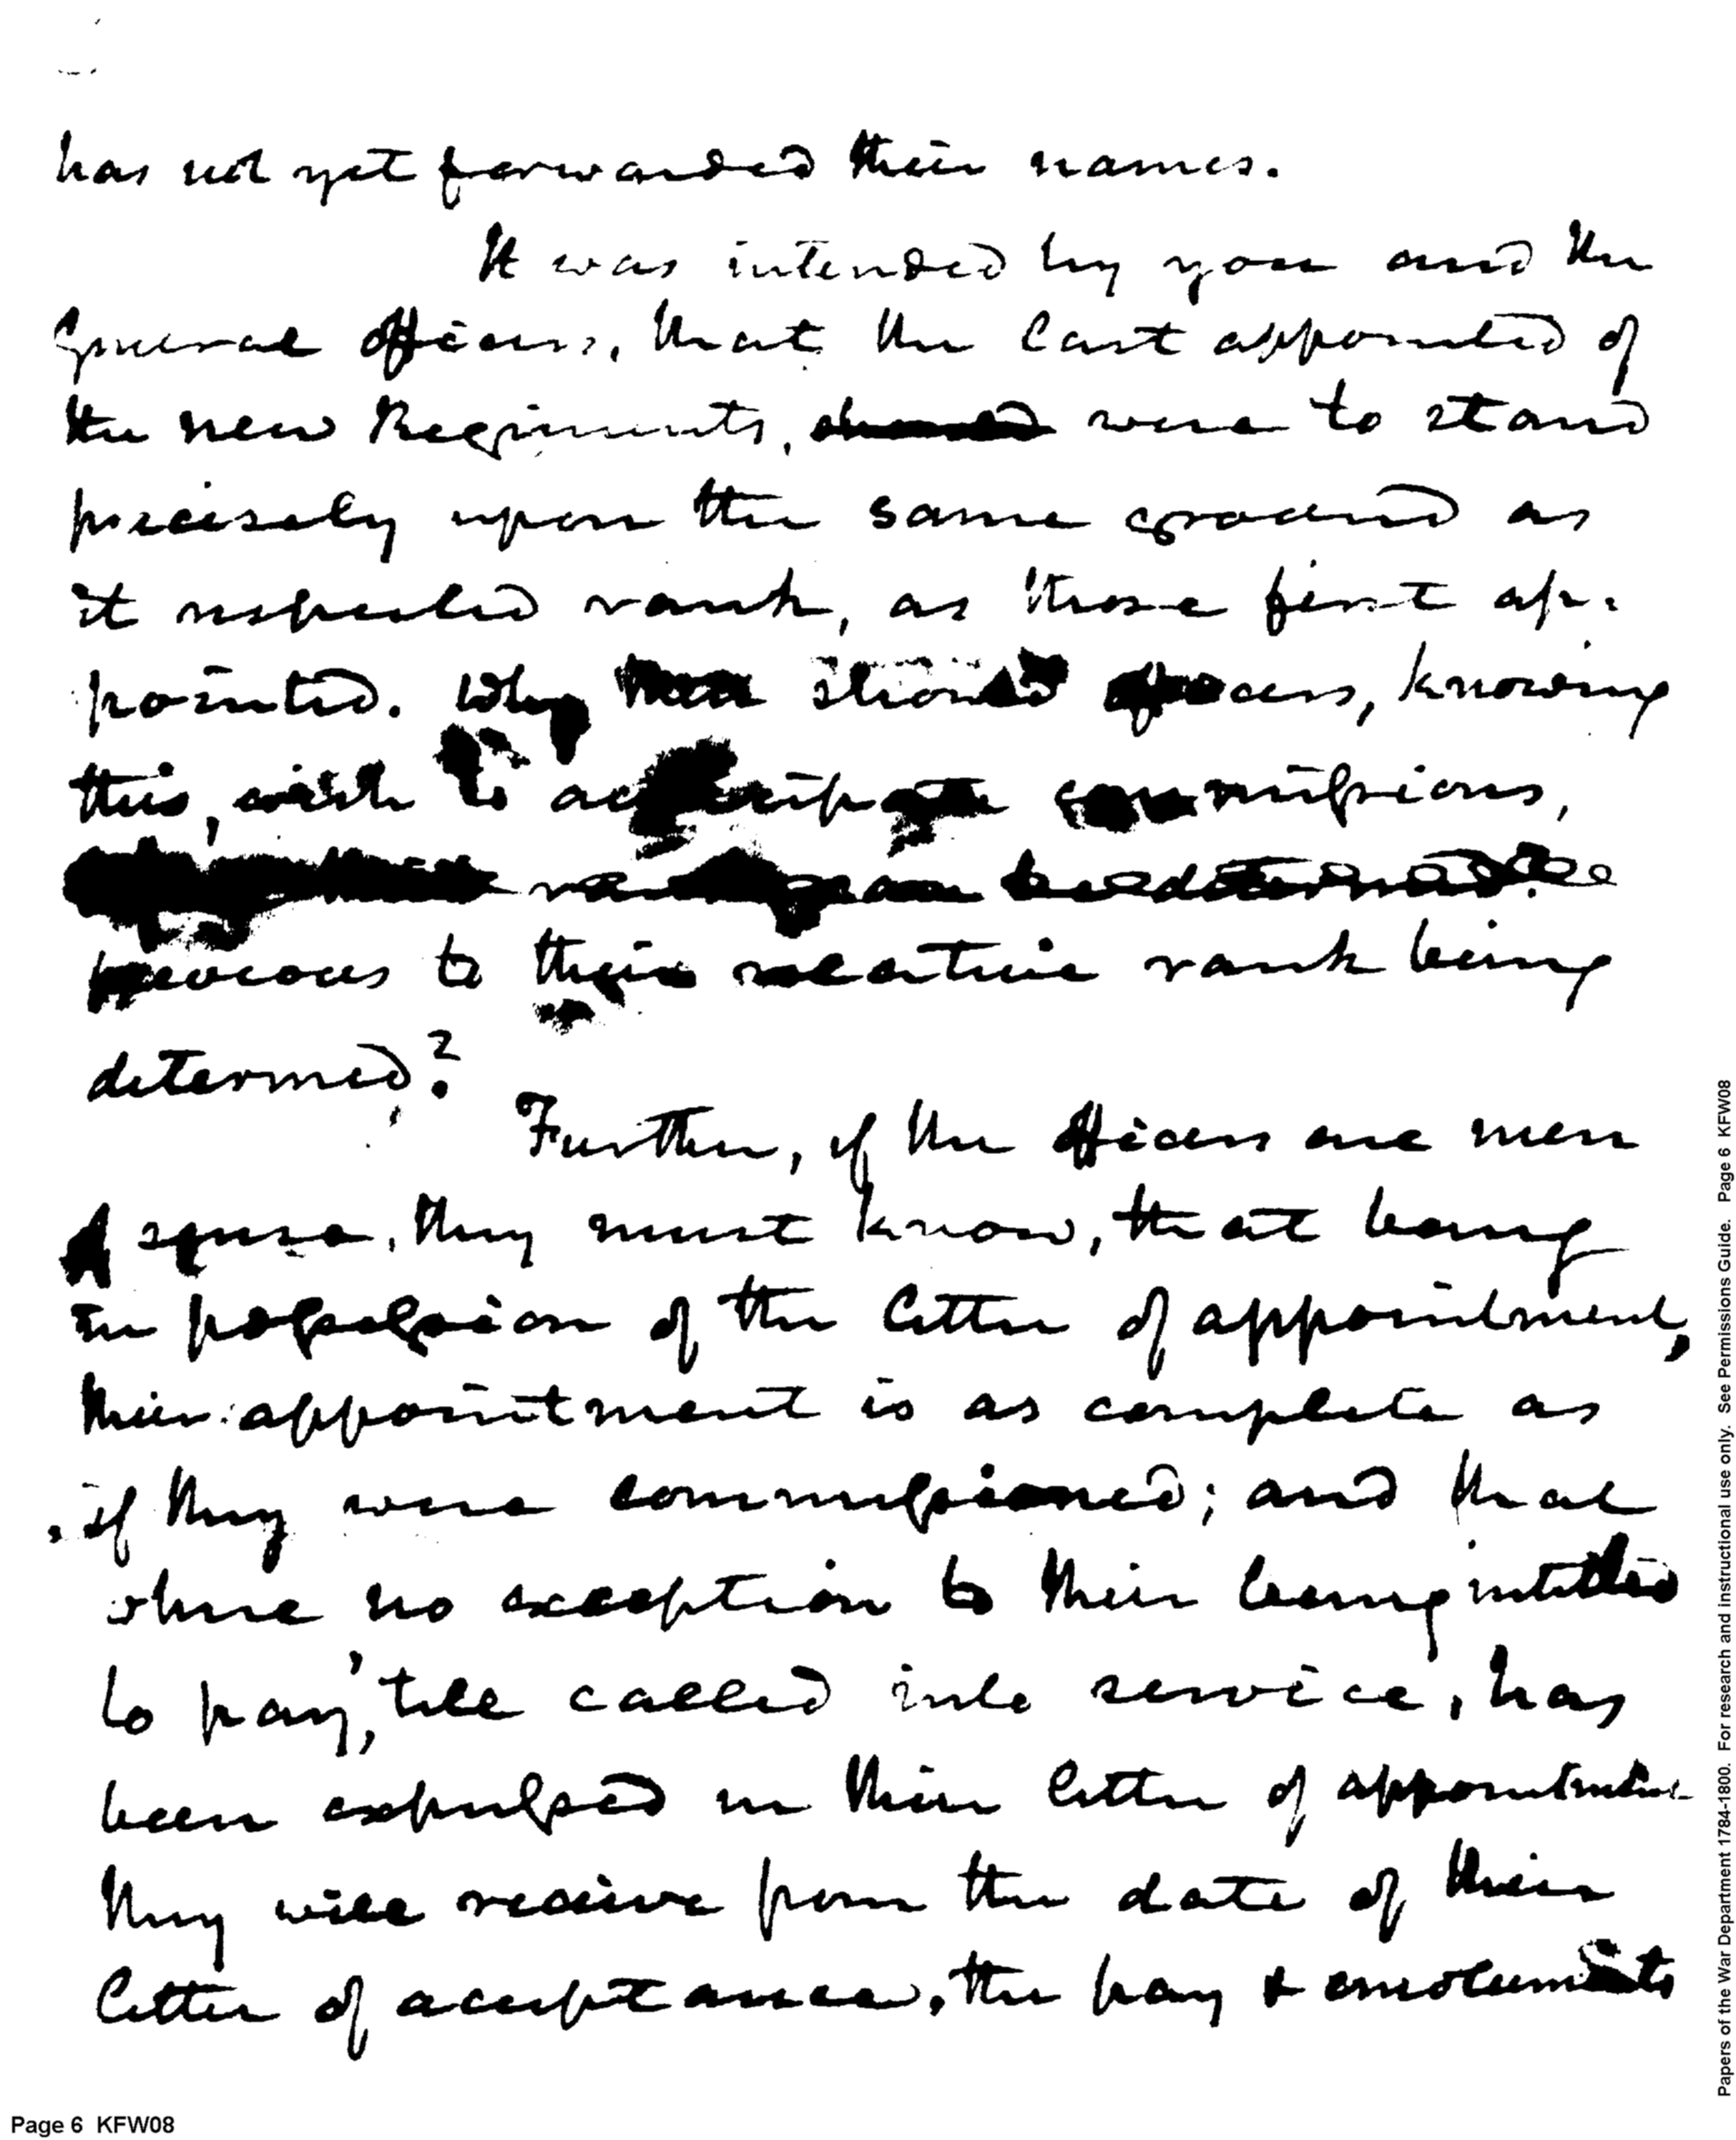 has not yet forwarded their names.
It was intended by you and the
General Officers, that the last appointed of
the new Regiments, were to stand
precisely upon the same ground as
it respected rank, as those first ap-
pointed. Why should officers, knowing
this, wish to commissions,
previous to their relative rank being
determed?
Further, if the officers are men
of sense, they must know, that being
in possession of the letter of appointment,
their appointment is as complete as
if they were commissioned; and that
where no exception to their being intitled
to pay, till called into service, has
been expressed in their letter of appointment
they will receive from the date of their
letter of acceptance, the pay & emoluments
Page 6 KFW08
Papers of the War Department 1784-1800. For research and instructional use only. See Permissions Guide. Page 6 KFW08